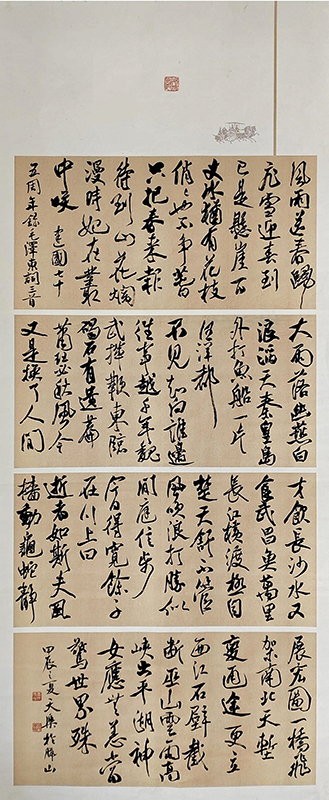 風雨送春歸
飛雪迎春到
已是懸崖百
丈冰猶有花枝
俏〻也不爭春
只把春來報
待到山花爛
漫時她在叢
中咲 建國七十
五周年錄毛澤東詞三首
大雨落幽燕白
浪滔天秦皇島
外打魚船一片
汪洋都
不見知向誰邊
往事越千年魏
武揮鞭東臨
碣石有遺篇
蕭瑟秋風今
又是換了人間
才飲長沙水又
食武昌魚萬里
長江橫渡極目
楚天舒不管
風吹浪打勝似
閒庭信步
今日得寬餘子
在川上曰
逝者如斯夫風
檣動龜蛇靜
展宏圖一橋飛
架南北天塹
變通途更立
西江石壁截
斷巫山雲雨高
峽出平湖神
女應無恙當
驚世界殊
甲辰之夏天樂於勝山